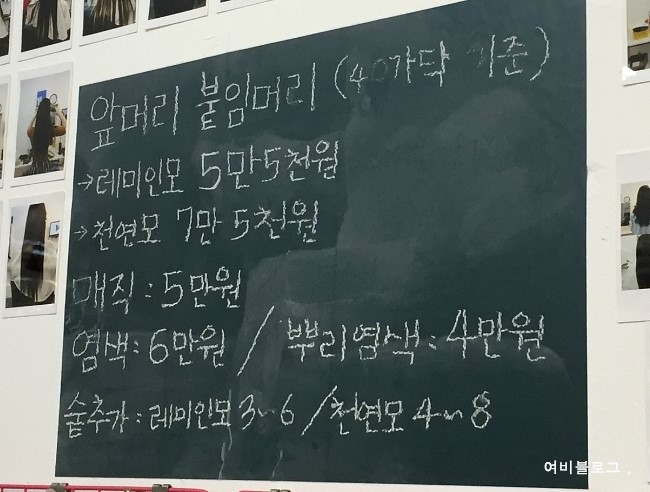 앞머리 붙임머리 (40가닥 기준)
→레미인모 5만5천원
→천연모 7만5천원
매직 : 5만원
염색 : 6만원 / 뿌리염색 : 4만원
숱추가 : 레미인모 3~6 / 천연모 4~8
여비블로그 ,